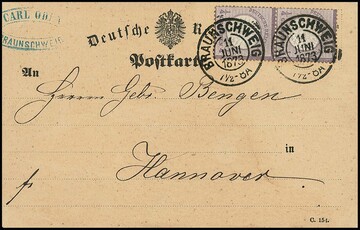 CARL
BRAUNSCHWEIG
Deutsche R
Postkart
BRAUNSCHWEIG
11
JUNI
1873
7½-8A
BRAUNSCHWEIG
11
JUNI
1873
7½-8A
An
Herren Gebr. Bengen
in
Hannover
fr
C. 154.